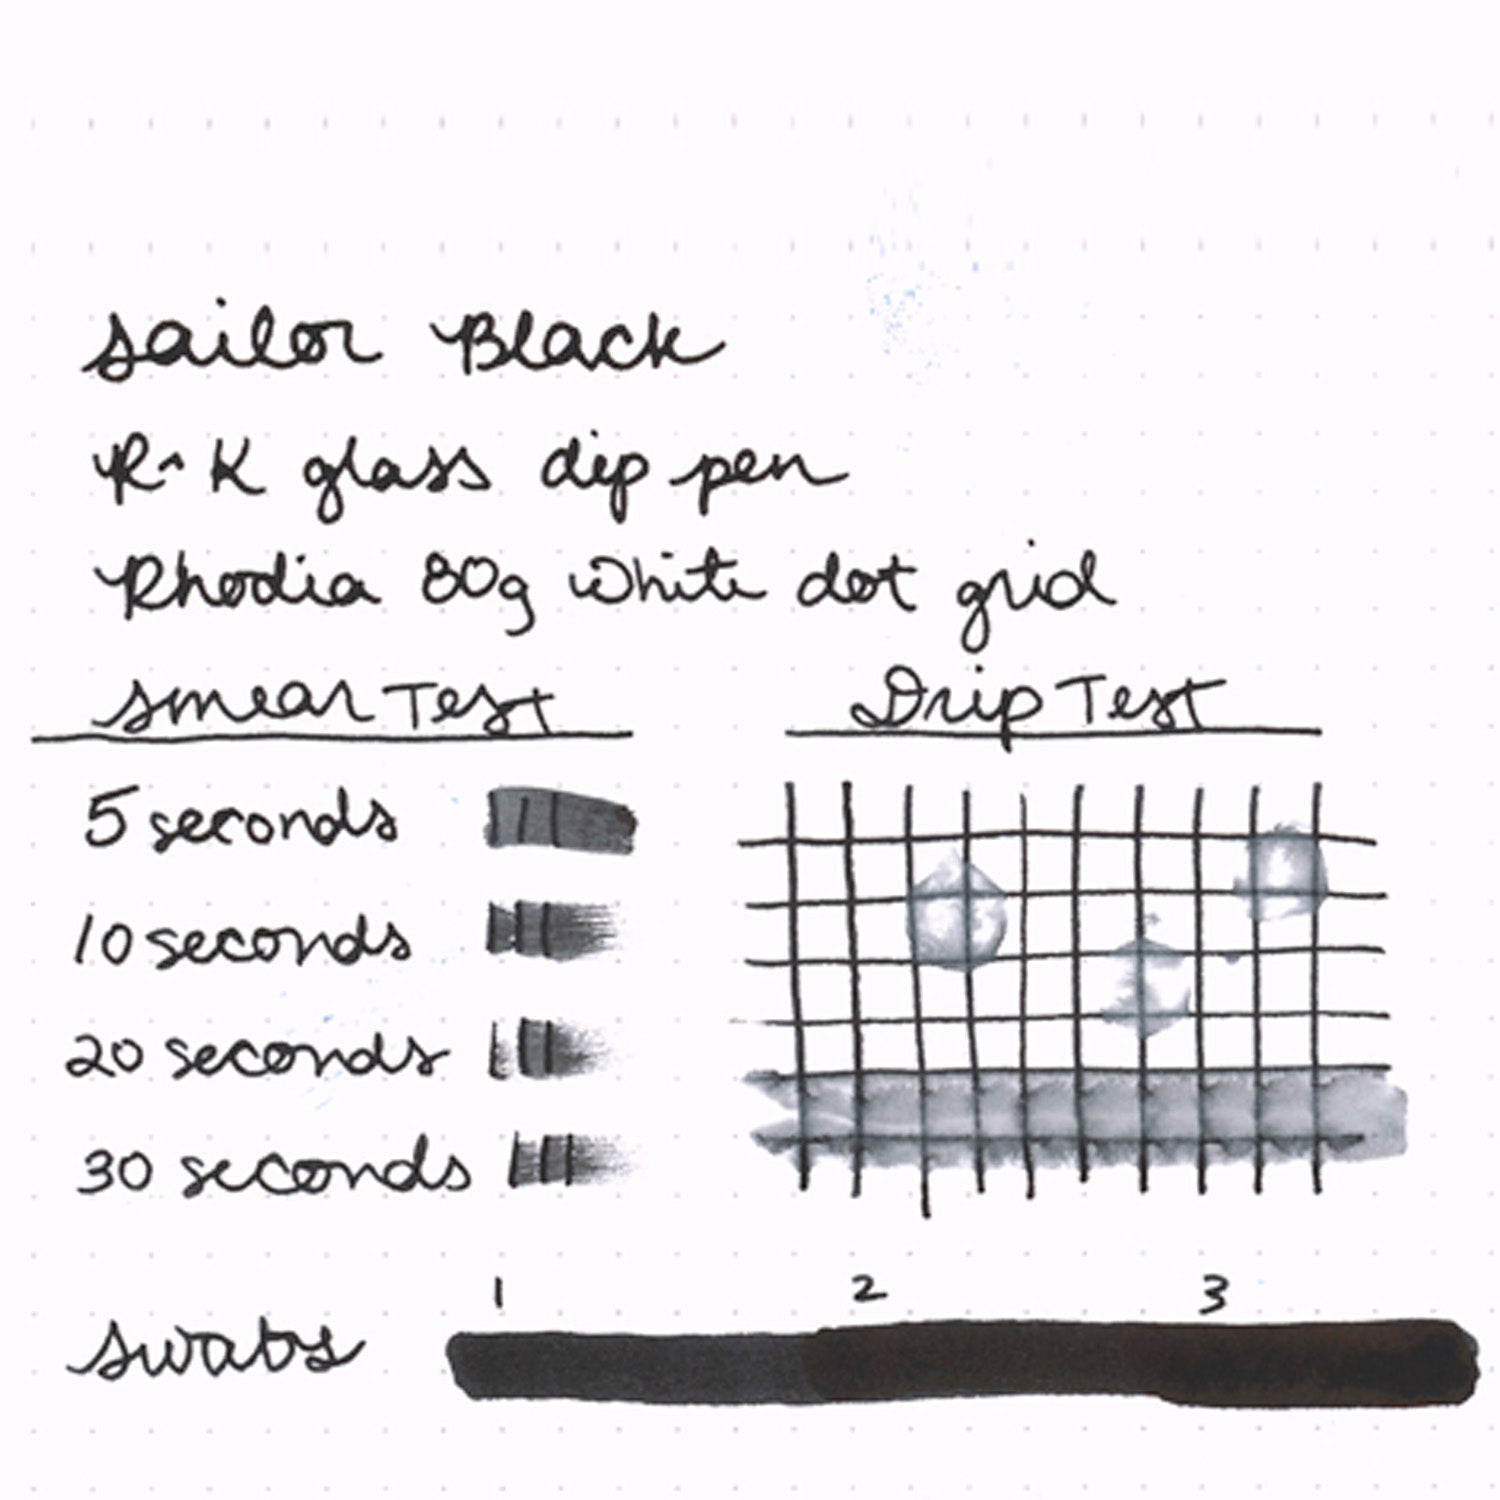 Sailor Black
R-K glass dip pen
Rhodia 80g White dot grid
Smear Test
Drip Test
5 seconds
10 seconds
20 seconds
30 seconds
1 2 3
Swabs